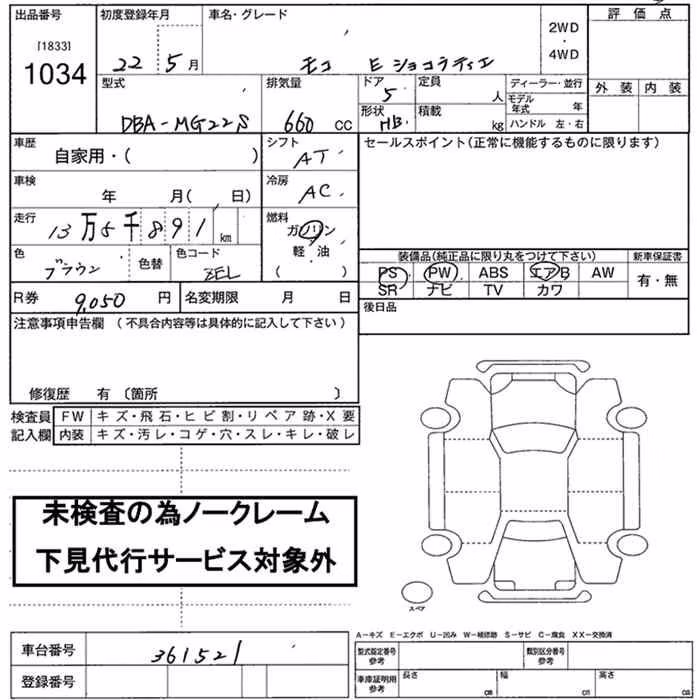 出品番号 初度登録年月 車名・グレード 評価点
[1833]
1034
22 5月 モコ E ショコラティエ 2WD・4WD
型式 排気量 ドア 定員 ディーラー・並行 外装 内装
5 人 モデル年式 年
DBA-MG22S 660 CC 形状 HB 積載 kg ハンドル 左・右
車歴 自家用・( ) シフト AT セールスポイント(正常に機能するものに限ります)
車検 年 月( 日) 冷房 AC
走行 13万5千891km 燃料 ガソリン・軽油 ( )
色 ブラウン 色替 色コード ZEL
装備品(純正品に限り丸をつけて下さい) 新車保証書
PS PW ABS エアB AW 有・無
SR ナビ TV カワ
R券 9,050円 名変期限 月 日 後日品
注意事項申告欄 (不具合内容等は具体的に記入して下さい)
修復歴 有 〔箇所 〕
検査員 FW キズ・飛石・ヒビ割・リペア跡・X要
記入欄 内装 キズ・汚レ・コゲ・穴・スレ・キレ・破レ
未検査の為ノークレーム
下見代行サービス対象外
スペア
A−キズ E−エクボ U−凹み W−補修跡 S−サビ C−腐食 XX−交換済
車台番号 361521 型式指定番号 参考 類別区分番号 参考
登録番号 車庫証明用 参考 長さ cm 幅 cm 高さ cm